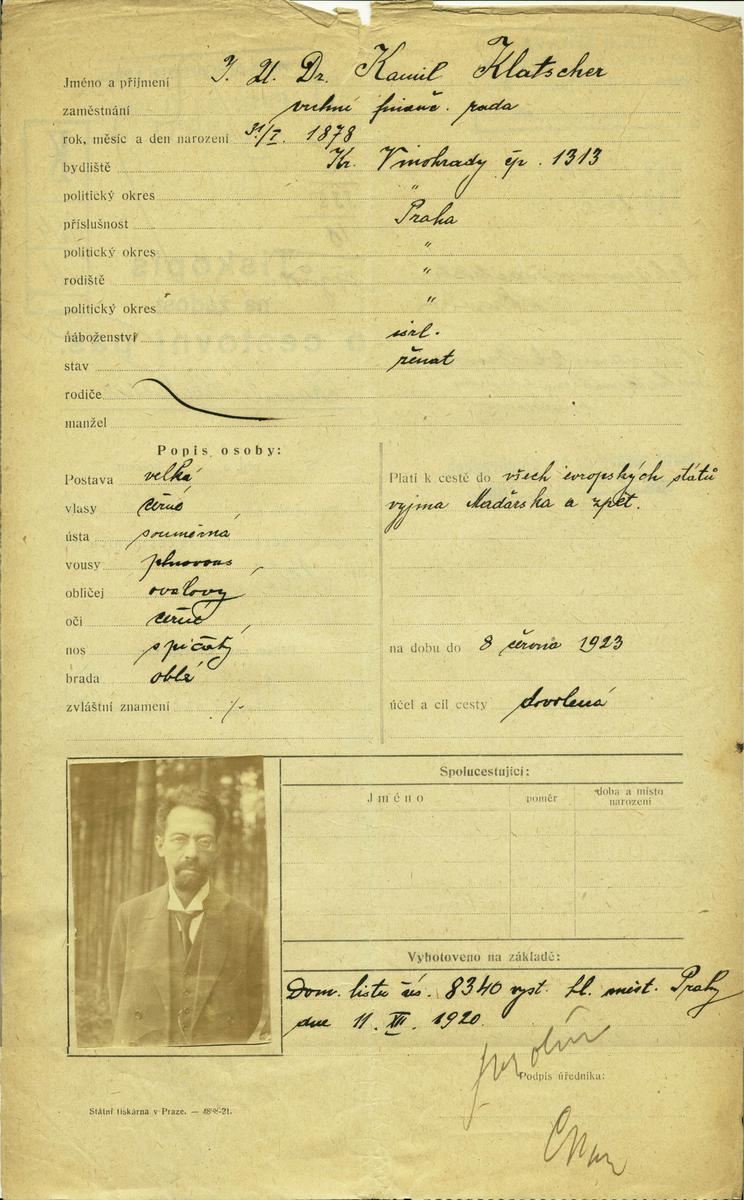 Jméno a příjmení J. U. Dr. Kamil Klatscher
zaměstnání vrchní finanč. rada
rok, měsíc a den narození 31/I. 1878
bydliště Kr. Vinohrady čp. 1313
politický okres "
příslušnost Praha
politický okres "
rodiště "
politický okres "
náboženství isrl.
stav ženat
rodiče
manžel
Popis osoby:
Postava velká
vlasy černé
ústa souměrná
vousy plnovous
obličej oválový
oči černé
nos spičatý
brada oblá
zvláštní znamení ·/·
Platí k cestě do všech evropských států
vyjma Maďarska a zpět.
na dobu do 8 června 1923
účel a cíl cesty dovolená
Spolucestující:
Jméno poměr doba a místo narození
Vyhotoveno na základě:
Dom. listu čís. 8340 vyst. hl. měst. Prahy
dne 11. XII. 1920.
Podpis úředníka:
Státní tiskárna v Praze. —